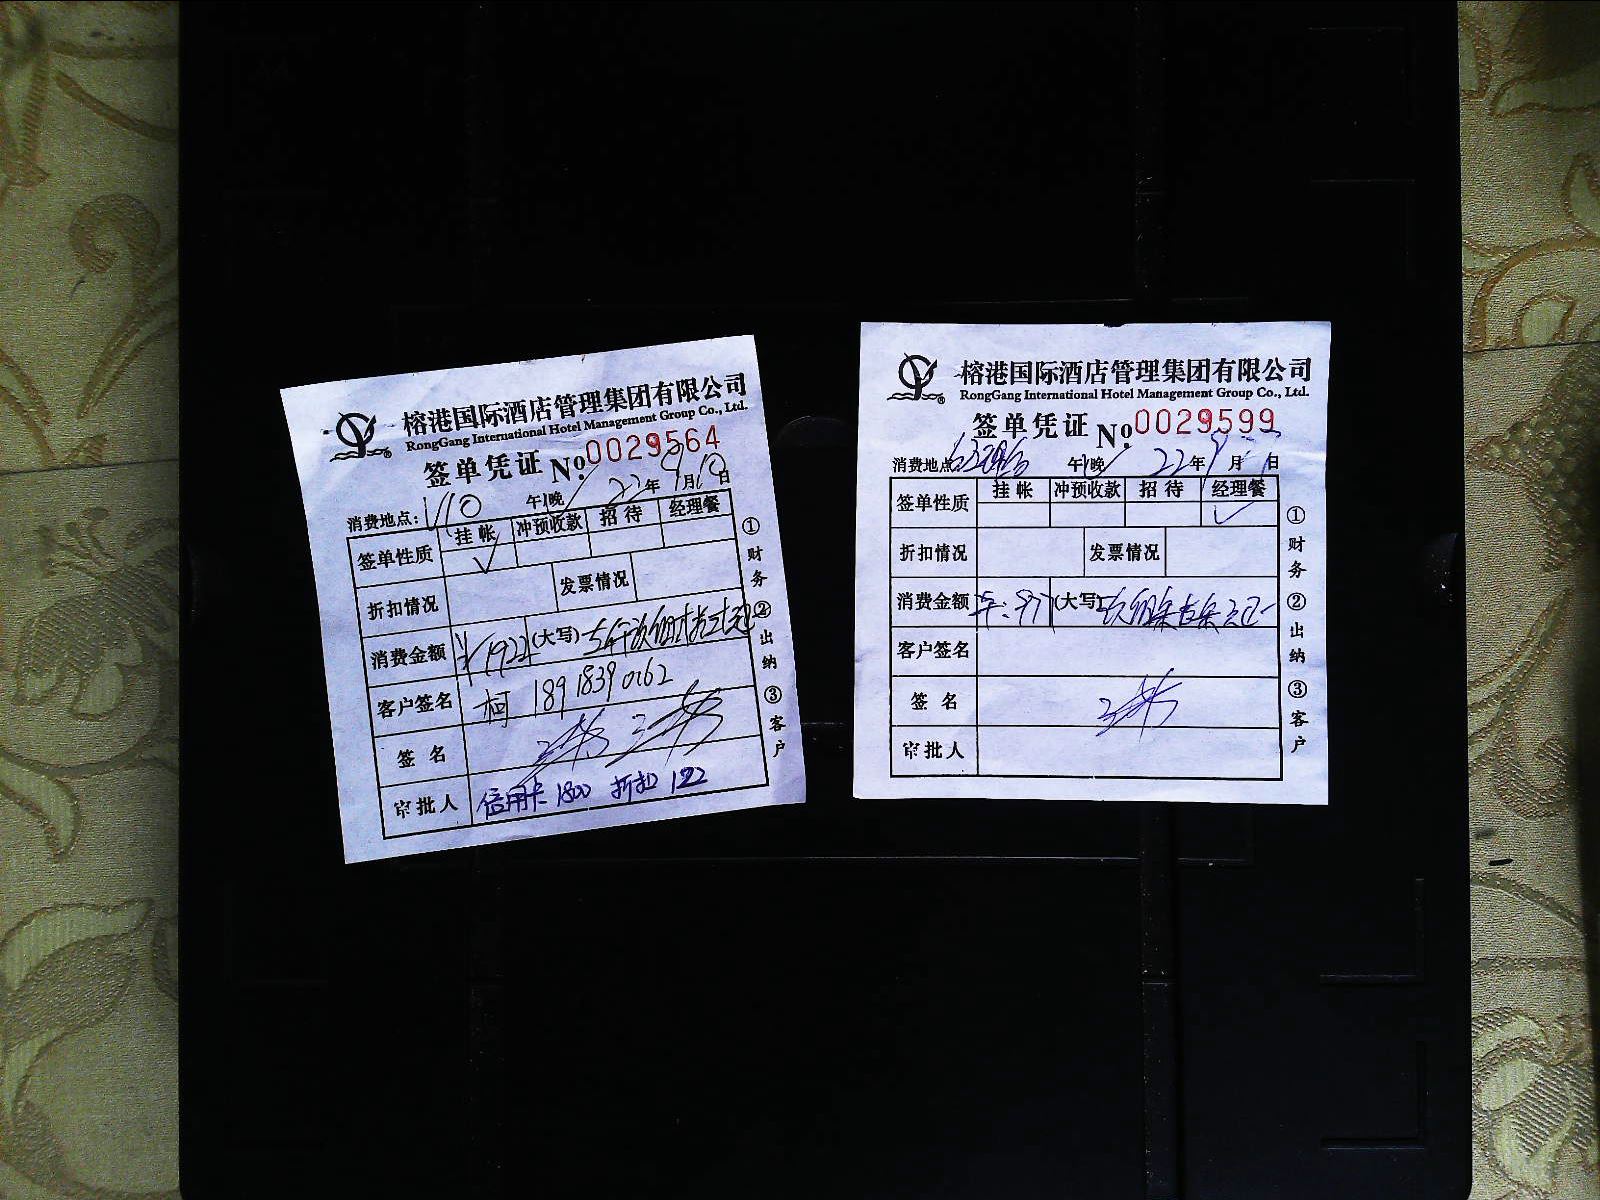 榕港国际酒店管理集团有限公司
RongGang International Hotel Management Group Co., Ltd.
签单凭证 No. 0029564
消费地点: V10 午 晚 22年9月10日
签单性质 挂帐 冲预收款 招待 经理餐
✓
折扣情况 发票情况
消费金额 ¥1922 (大写)
客户签名 柯 189 1839 0162
签名
审批人 信用卡 1800 折扣 122
①财务②出纳③客户
榕港国际酒店管理集团有限公司
RongGang International Hotel Management Group Co., Ltd.
签单凭证 No. 0029599
消费地点: 午 晚 22年9月 日
签单性质 挂帐 冲预收款 招待 经理餐
✓
折扣情况 发票情况
消费金额 977 (大写)
客户签名
签名
审批人
①财务②出纳③客户